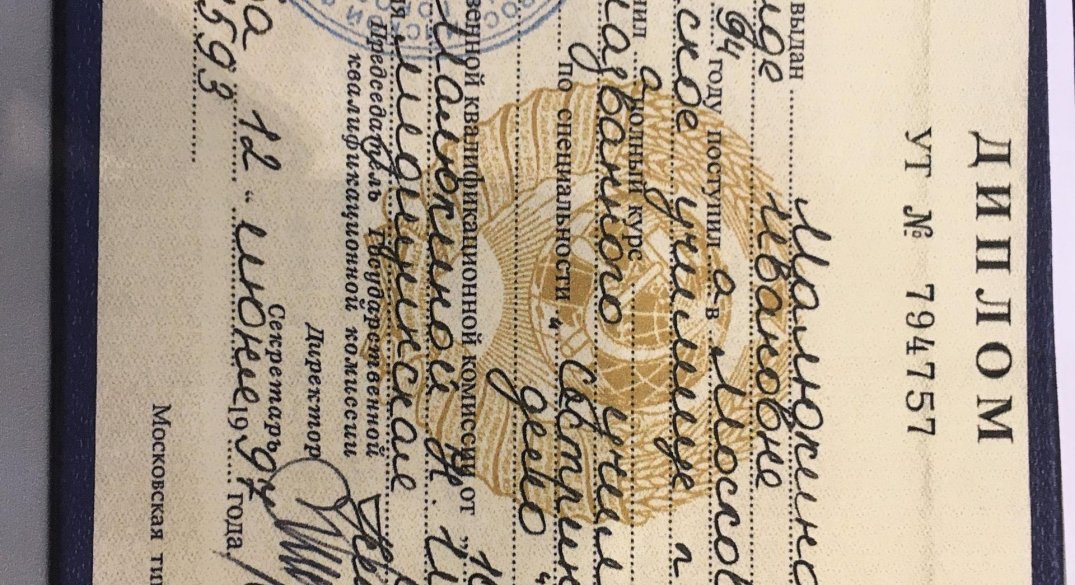 ДИПЛОМ
УТ № 794757
выдан Малюкино
Ивановне
94 году поступил а в Москов
ское училище
а полный курс
названного учил
по специальности „ Сестрин
дело “
венной квалификационной комиссии от „
Малюкиной Н. И
медицинская
Председатель Государственной
квалификационной комиссии
Директор
Секретарь
12 “ июне 1997 года
593
Московская ти